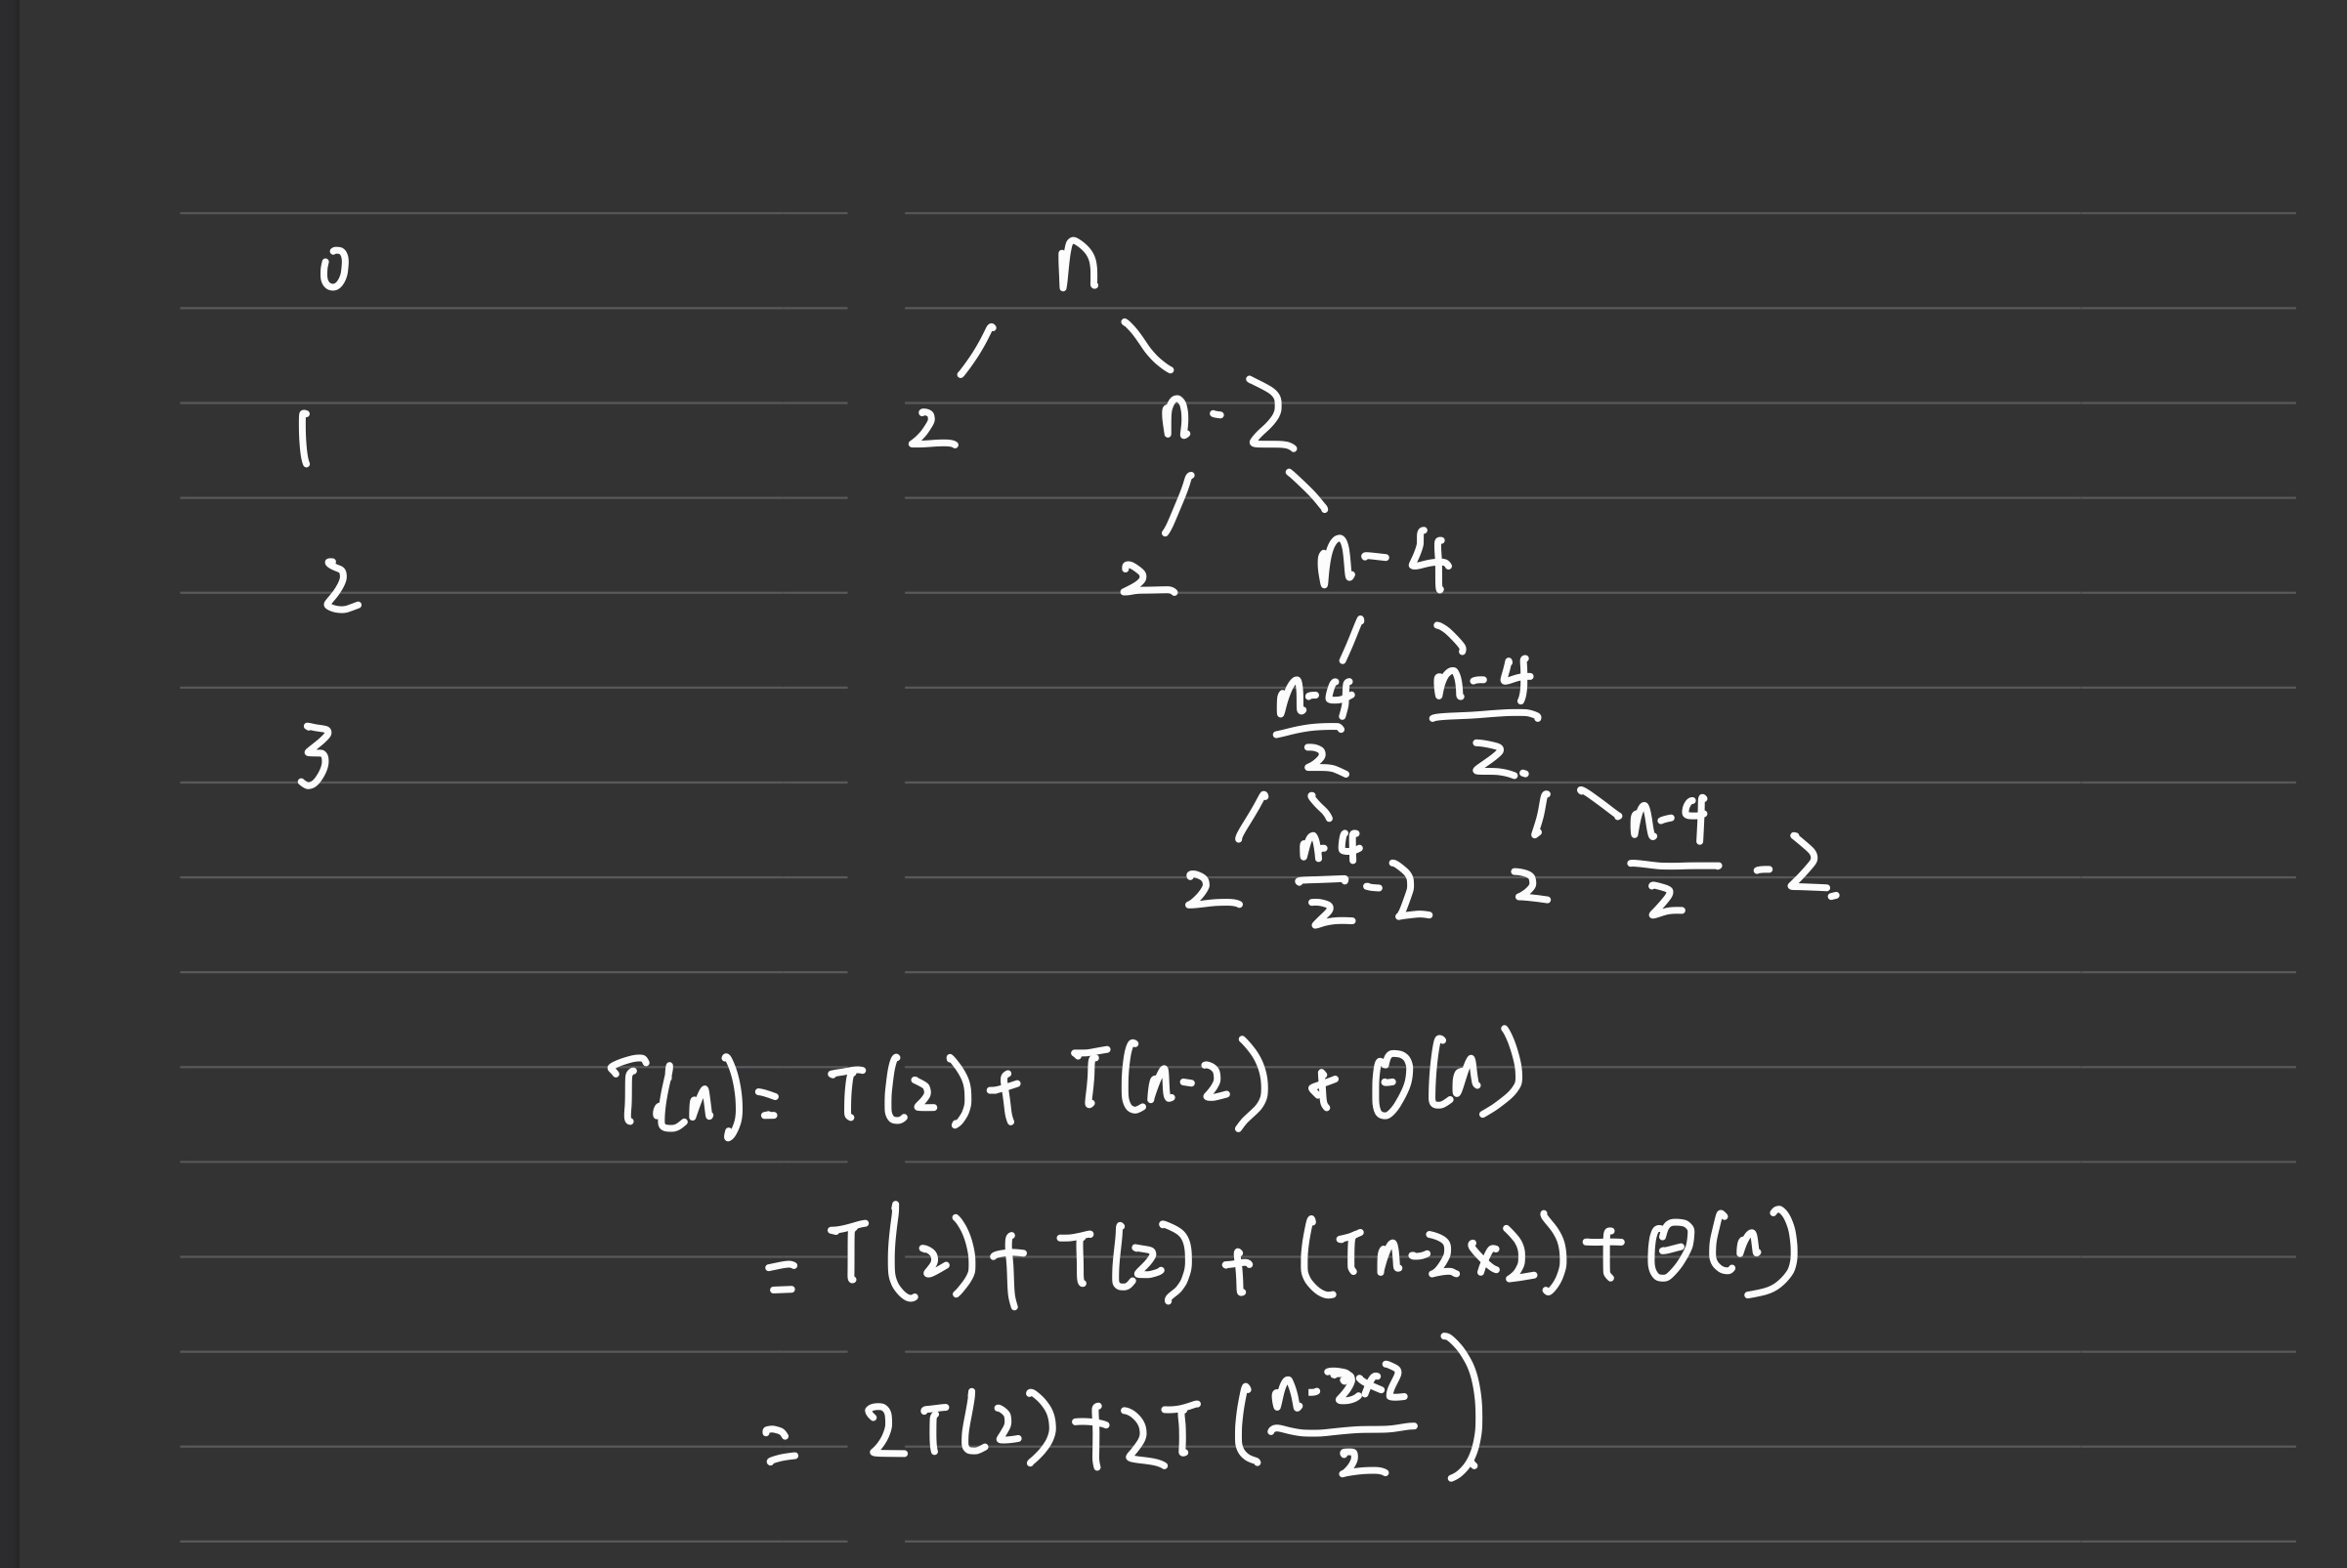 0 n
1 2 n-2
2 2 n-4
3 (n-4)/2 (n-4)/2
2 (n-4)/2 - 2 2 (n-4)/2 - 2
T(n) = T(2) + T(n-2) + θ(n)
= T(2) + T(2) + (Tn-2×2) + θ(n)
= 2T(2) + 2T((n-2×2)/2)